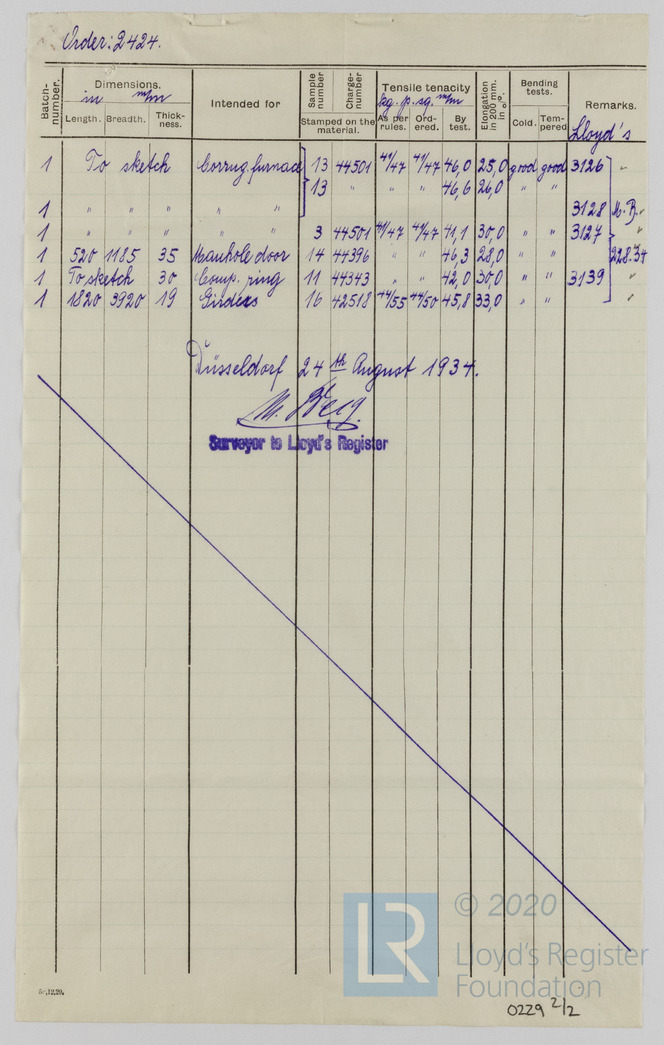 Order: 2424.
Batch-number. Dimensions. in m/m Length. Breadth. Thick-ness. Intended for Sample number Charge-number Stamped on the material. Tensile tenacity kg. p. sq. m/m As per rules. Or-dered. By test. Elongation in 200 mm. in %. Bending tests. Cold. Tem-pered Remarks. Lloyd's
1 To sketch Corrug. furnace 13 44501 41/47 41/47 46,0 25,0 good good 3126 "
13 " " " 46,6 26,0 " "
1 " " " " " 3128 M. B. "
1 " " " " " 3 44501 41/47 41/47 41,1 30,0 " " 3127 "
1 520 1185 35 Manhole door 14 44396 " " 46,3 28,0 " " 228.34
1 To sketch 30 Comp. ring 11 44343 " " 42,0 30,0 " " 3139 "
1 1820 3920 19 Girders 16 42518 44/55 44/50 45,8 33,0 " " "
Düsseldorf 24th August 1934.
M. Berg
Surveyor to Lloyd's Register
LR © 2020
Lloyd's Register
Foundation
0229 2/2